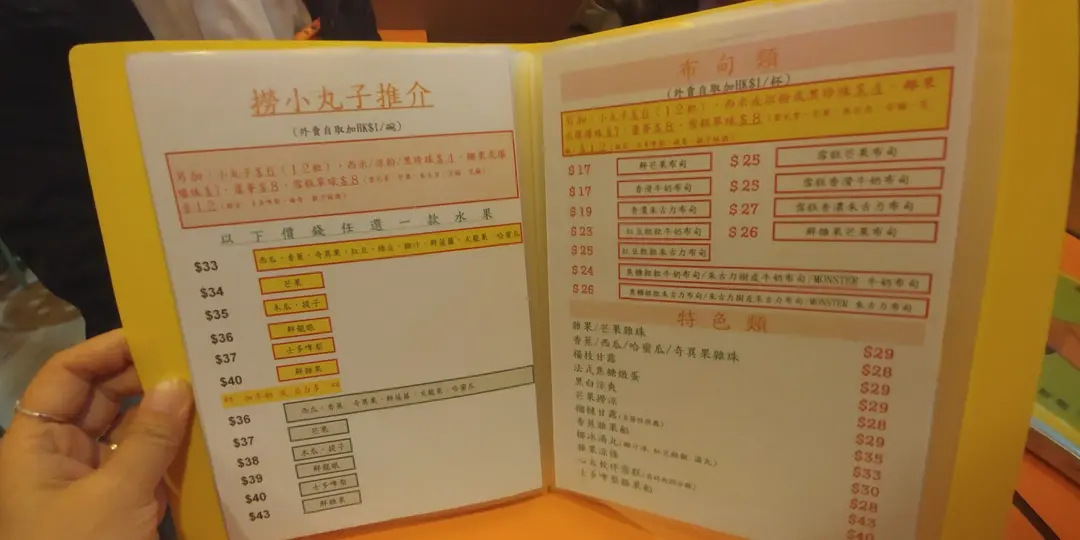 撈小丸子推介
(外賣自取加HK$1/碗)
另加:小丸子$6(12粒),西米/涼粉/黑珍珠$4,椰果或爆
爆珠$7,蘆薈$8,雪糕單球$8
$12
以下價錢任選一款水果
$33 西瓜,香蕉,奇異果,紅豆,綠豆,椰汁,鮮菠蘿,火龍果 哈蜜瓜
$34 芒果
$35 木瓜,提子
$36 鮮龍眼
$37 士多啤梨
$40 鮮榴槤
$36 西瓜,香蕉 奇異果,鮮菠蘿,火龍果,哈蜜瓜
$37 芒果
$38 木瓜,提子
$39 鮮龍眼
$40 士多啤梨
$43 鮮榴槤
布甸類
(外賣自取加HK$1/杯)
另加:小丸子$6(12粒),西米或涼粉或黑珍珠$4,椰果
或爆爆珠$7,蘆薈$8,雪糕單球$8
$12
$17 鮮芒果布甸 $25 雪糕芒果布甸
$17 香滑牛奶布甸 $25 雪糕香滑牛奶布甸
$19 香濃朱古力布甸 $27 雪糕香濃朱古力布甸
$23 紅豆粒粒牛奶布甸 $26 鮮雜果芒果布甸
$25 紅豆粒粒朱古力布甸
$24 焦糖粒粒牛奶布甸/朱古力樹皮牛奶布甸/MONSTER 牛奶布甸
$26 焦糖粒粒朱古力布甸/朱古力樹皮朱古力布甸/MONSTER 朱古力布甸
特色類
雜果/芒果雜珠 $29
香蕉/西瓜/哈蜜瓜/奇異果雜珠 $28
楊枝甘露 $29
法式焦糖燉蛋 $29
黑白涼爽 $28
芒果撈涼 $29
榴槤甘露 $35
香蕉雜果船 $33
椰冰滴丸 $30
雜果涼條 $28
心太軟伴雪糕 $43
士多啤梨雜果船 $40